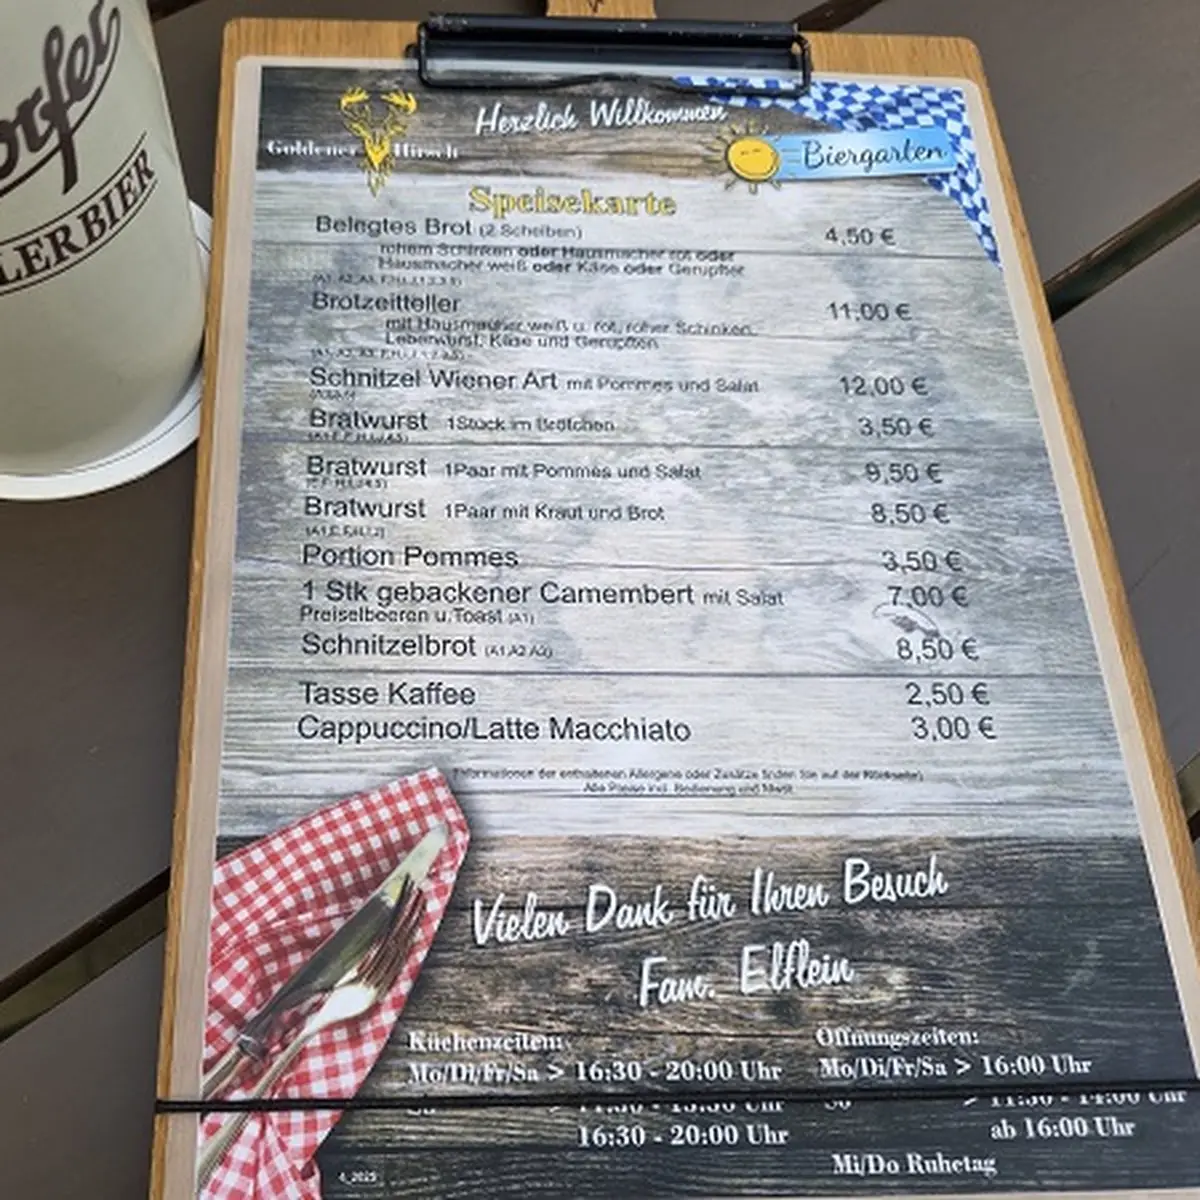 orfer
LERBIER
Herzlich Willkommen
Goldener Hirsch
Biergarten
Speisekarte
Belegtes Brot (2 Scheiben) 4,50 €
rohem Schinken oder Hausmacher rot oder
Hausmacher weiß oder Käse oder Gerupfter
Brotzeitteller 11,00 €
mit Hausmacher weiß u. rot, roher Schinken,
Leberwurst, Käse und Gerupften
Schnitzel Wiener Art mit Pommes und Salat 12,00 €
Bratwurst 1Stück im Brötchen 3,50 €
Bratwurst 1Paar mit Pommes und Salat 9,50 €
Bratwurst 1Paar mit Kraut und Brot 8,50 €
Portion Pommes 3,50 €
1 Stk gebackener Camembert mit Salat 7,00 €
Preiselbeeren u.Toast (A1)
Schnitzelbrot (A1 A2 A3) 8,50 €
Tasse Kaffee 2,50 €
Cappuccino/Latte Macchiato 3,00 €
Informationen der enthaltenen Allergene oder Zusätze finden Sie auf der Rückseite
Alle Preise incl. Bedienung und Mwst.
Vielen Dank für Ihren Besuch
Fam. Elflein
Küchenzeiten: Öffnungszeiten:
Mo/Di/Fr/Sa > 16:30 - 20:00 Uhr Mo/Di/Fr/Sa > 16:00 Uhr
So > 11:30 - 13:30 Uhr So > 11:30 - 14:00 Uhr
16:30 - 20:00 Uhr ab 16:00 Uhr
Mi/Do Ruhetag
4_2025